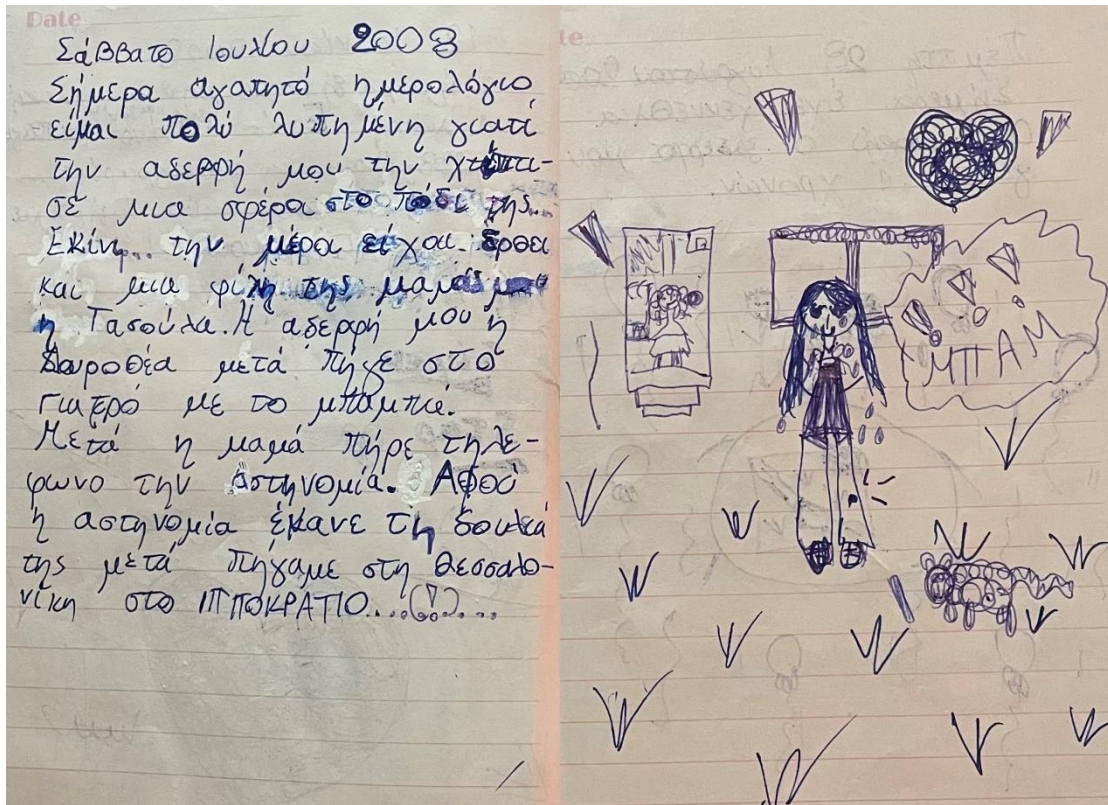 Date
Σάββατο Ιουλίου 2008
Σήμερα αγαπητό ημερολόγιο
είμαι πολύ λυπημένη γιατί
την αδερφή μου την χτύπη-
σε μια σφέρα στο πόδι της...
Εκίνη.. την μέρα είχαι έρθει
και μια φίλη της μαμάς μου
η Τασούλα. Η αδερφή μου η
Δωροθέα μετά πήγε στο
γιατρό με το μπαμπά.
Μετά η μαμά πήρε τηλέ-
φωνο την αστηνομία. Αφού
η αστηνομία έκανε τη δουλειά
της μετά πήγαμε στη Θεσσαλο-
νίκη στο ΙΠΠΟΚΡΑΤΙΟ....(!)....
ΜΠΑΜ